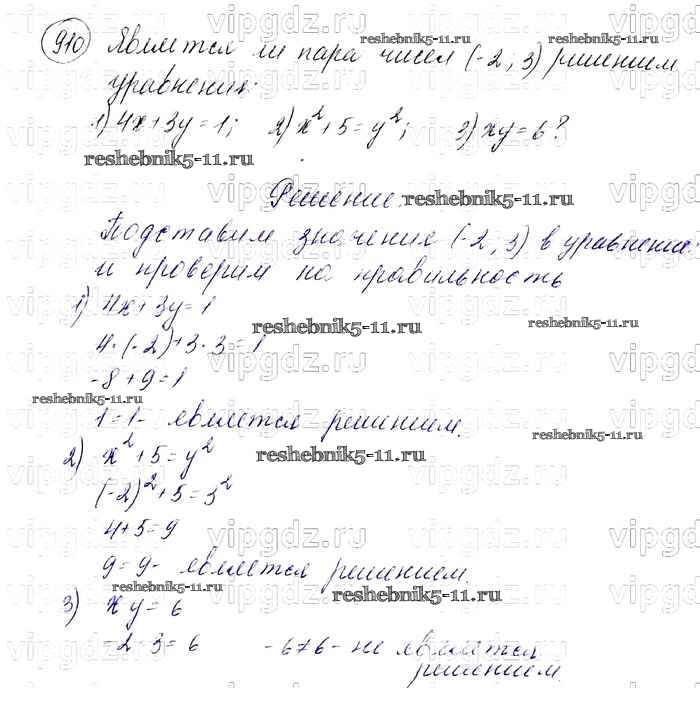 910 Является ли пара чисел (-2; 3) решением
уравнения:
1) 4x+3y=1; 2) x²+5=y²; 3) xy=6?
Решение.
Подставим значение (-2, 3) в уравнение
и проверим на правильность
1) 4x+3y=1
4·(-2)+3·3=1
-8+9=1
1=1- является решением.
2) x²+5=y²
(-2)²+5=3²
4+5=9
9=9- является решением.
3) xy=6
-2·3=6 -6≠6- не является
решением.
reshebnik5-11.ru
vipgdz.ru